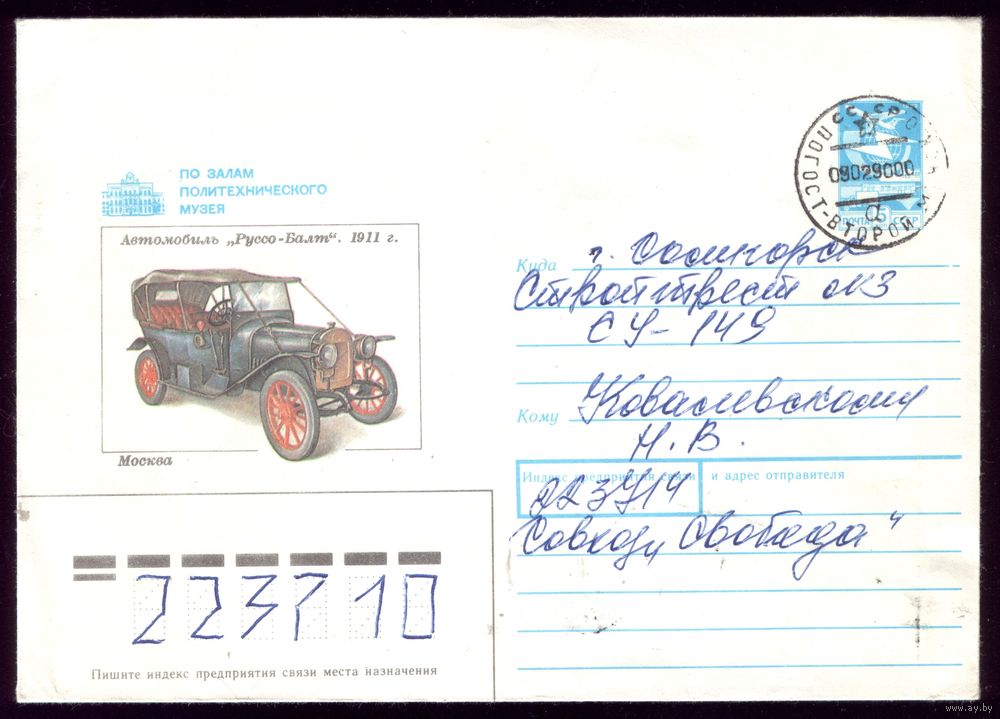 ПО ЗАЛАМ
ПОЛИТЕХНИЧЕСКОГО
МУЗЕЯ
Автомобиль „Руссо-Балт“. 1911 г.
Москва
СССР
09029000
а
ПОГОСТ-ВТОРОЙ
ПОЧТА 5 СССР
Куда г. Солигорск
Стройтрест №3
СУ-149
Кому Ковалевскому
Н. В.
Индекс предприятия связи и адрес отправителя
223714
Совхоз „Свобода“
223710
Пишите индекс предприятия связи места назначения
www.ay.by